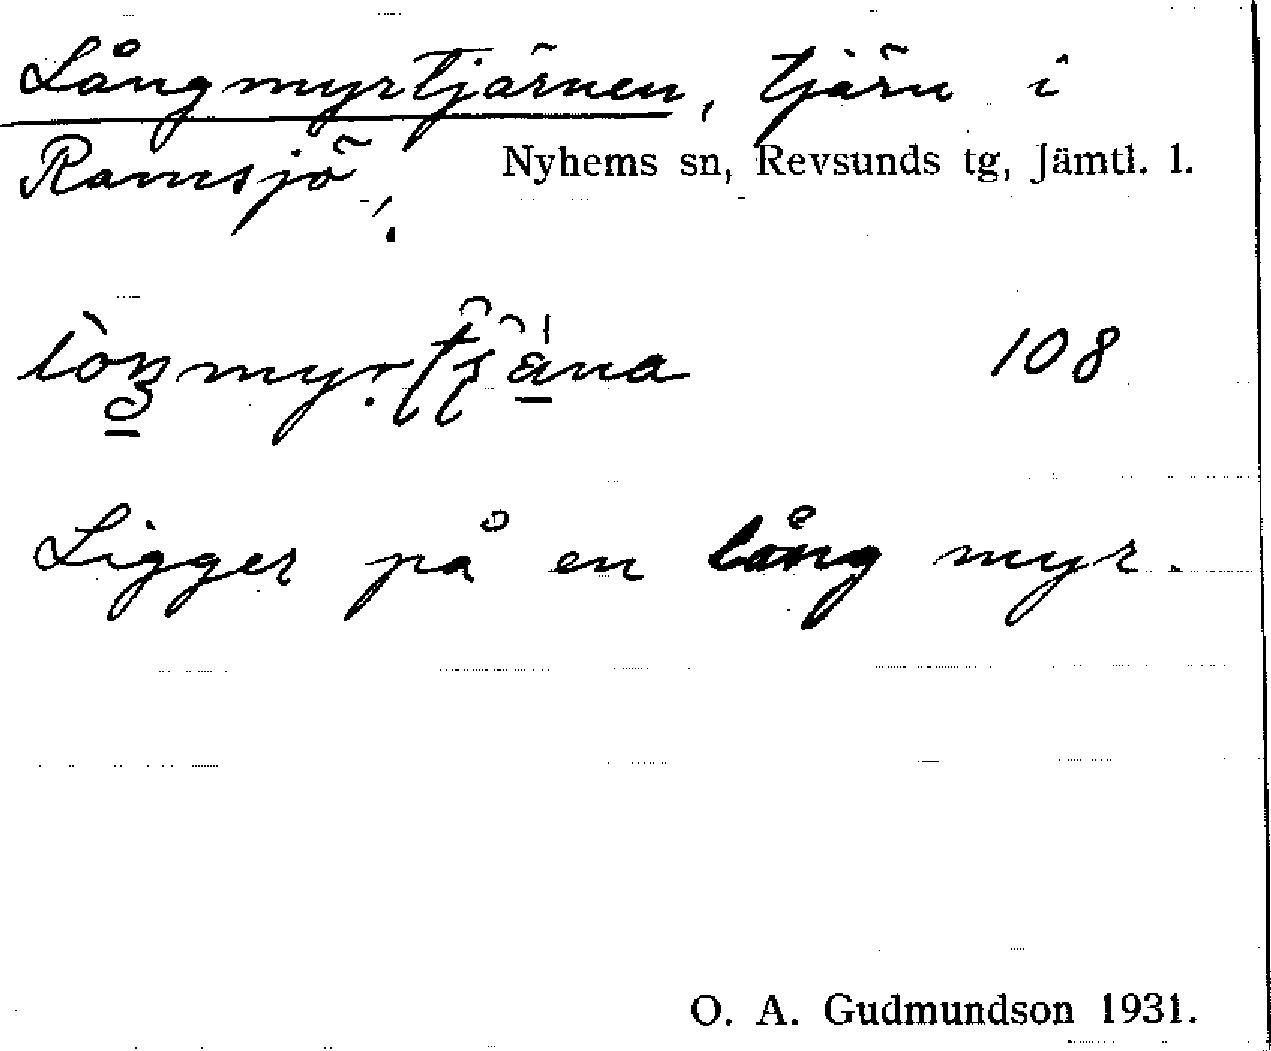 Långmyrtjärnen, tjärn i
Ramsjö, Nyhems sn, Revsunds tg, Jämtl. l.
108
Ligger på en lång myr.
O. A. Gudmundson 1931.